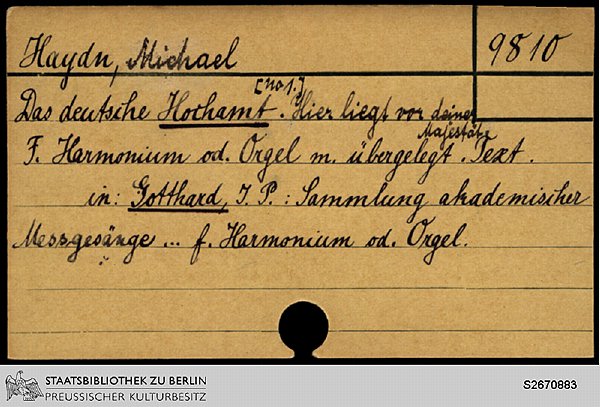 Haydn, Michael
9810
[No 1.]
Das deutsche Hochamt. Hier liegt vor deiner
Majestät
F. Harmonium od. Orgel m. übergelegt. Text.
in: Gotthard, J. P.: Sammlung akademischer
Messgesänge ... f. Harmonium od. Orgel.
STAATSBIBLIOTHEK ZU BERLIN
PREUSSISCHER KULTURBESITZ
S2670883